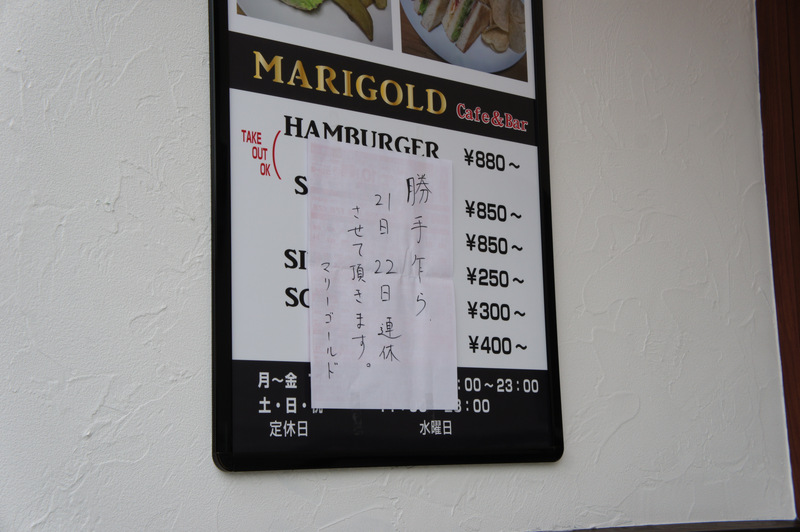 MARIGOLD Cafe&Bar
TAKE
OUT
OK
HAMBURGER ¥880～
¥850～
¥850～
¥250～
¥300～
¥400～
勝手乍ら
21日 22日 連休
させて頂きます。
マリーゴールド
月～金 :00～23:00
土・日・祝
定休日 水曜日